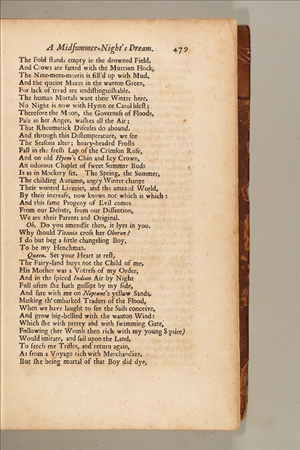 A Midsummer-Night's Dream. 479
The Fold stands empty in the drowned Field,
And Crows are fatted with the Murrion Flock,
The Nine-mens-morris is fill'd up with Mud,
And the queint Mazes in the wanton Green,
For lack of tread are undistinguishable.
The human Mortals want their Winter here,
No Night is now with Hymn or Carol blest;
Therefore the Moon, the Governess of Floods,
Pale in her Anger, washes all the Air;
That Rheumatick Diseases do abound.
And through this Distemperature, we see
The Seasons alter; hoary-headed Frosts
Fall in the fresh Lap of the Crimson Rose,
And on old Hyem's Chin and Icy Crown,
An odorous Chaplet of sweet Summer Buds
Is as in Mockery set. The Spring, the Summer,
The childing Autumn, angry Winter change
Their wonted Liveries, and the amazed World,
By their increase, now knows not which is which:
And this same Progeny of Evil comes
From our Debate, from our Dissention,
We are their Parents and Original.
Ob. Do you amend it then, it lyes in you.
Why should Titania cross her Oberon?
I do but beg a little changeling Boy,
To be my Henchman.
Queen. Set your Heart at rest,
The Fairy-land buys not the Child of me.
His Mother was a Votress of my Order,
And in the spiced Indian Air by Night
Full often she hath gossipt by my side,
And sate with me on Neptune's yellow Sands,
Marking th' embarked Traders of the Flood,
When we have laught to see the Sails conceive,
And grow big-bellied with the wanton Wind:
Which she with pretty and with swimming Gate,
Following (her Womb then rich with my young Squire)
Would imitate, and sail upon the Land,
To fetch me Trifles, and return again,
As from a Voyage rich with Merchandize.
But she being mortal of that Boy did dye,